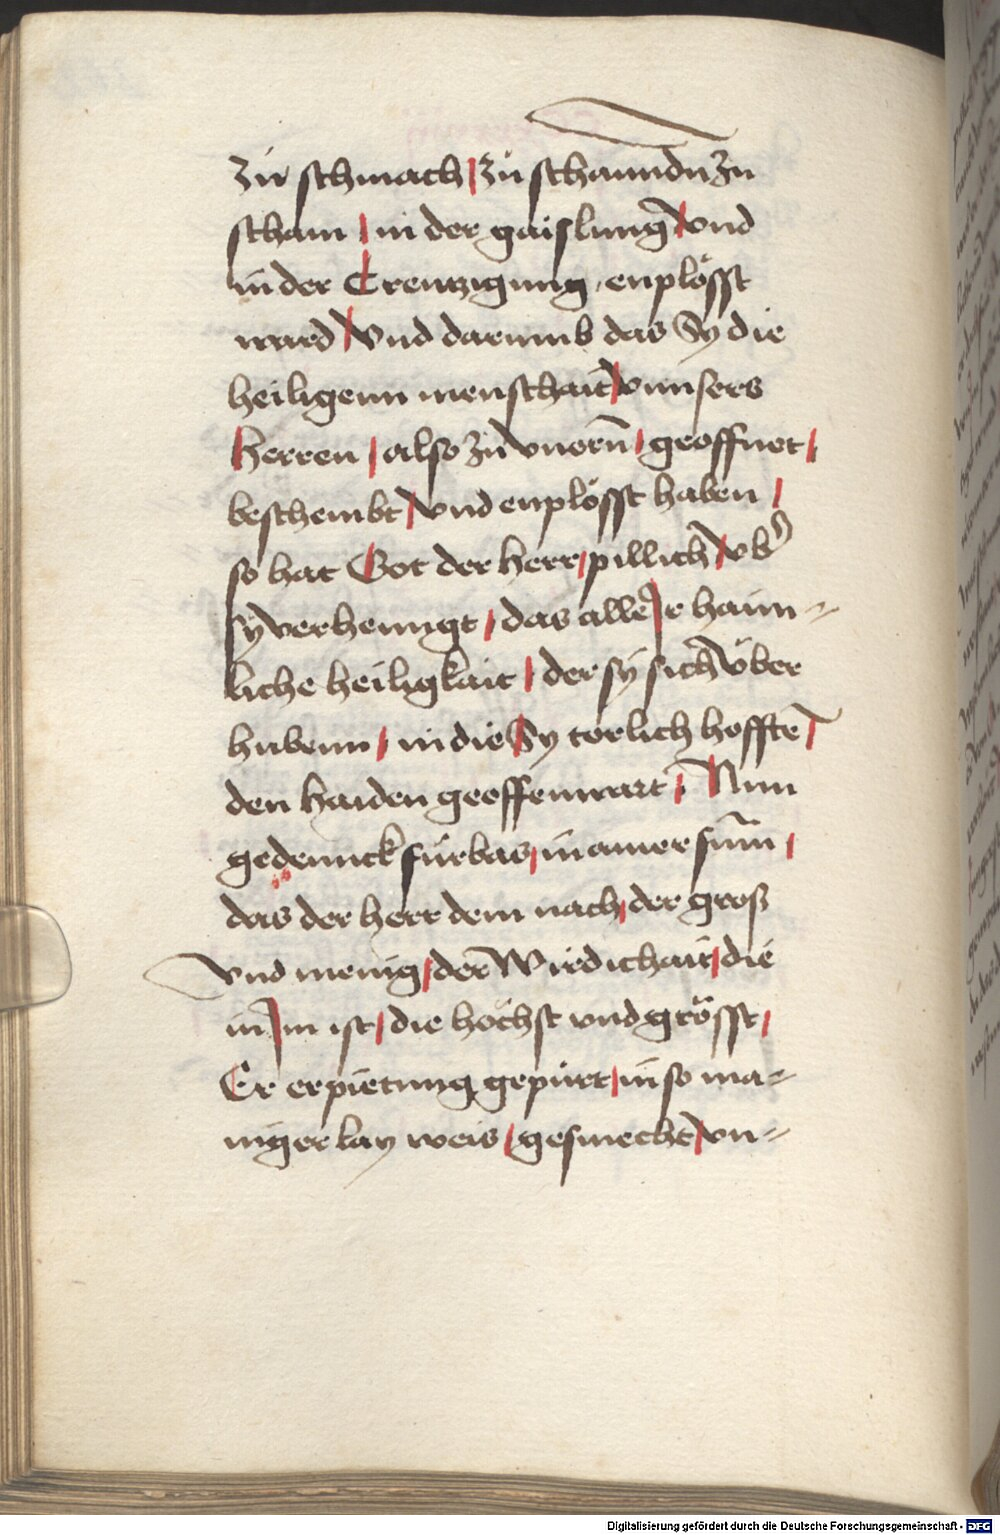 zu schmach / zu schanndn zu
scham / in der gaislung / vnd
in der Creutzigung, enplösst
ward / Vnd darumb das Sy die
heiligenn menschait / vnnsers
Herren / also zu vnern / geoffnet /
beschembt / vnd enplösst haben /
so hat Got der herr / pillich / vber
sy verhenngt / das alle Ir haim-
liche heiligkait / der sy sich über
hubenn / in die Sy torlich hofften /
den haiden geoffenwart / Nun
gedennck fürbas / in ainer sum /
das der herr dem nach / der gross
vnd menig / der Wirdichait / die
in Im ist / die höchst vnd grösst /
Er erpietung gepürt / in so ma-
niger lay weis / gesmecht / vn-
Digitalisierung gefördert durch die Deutsche Forschungsgemeinschaft - DFG